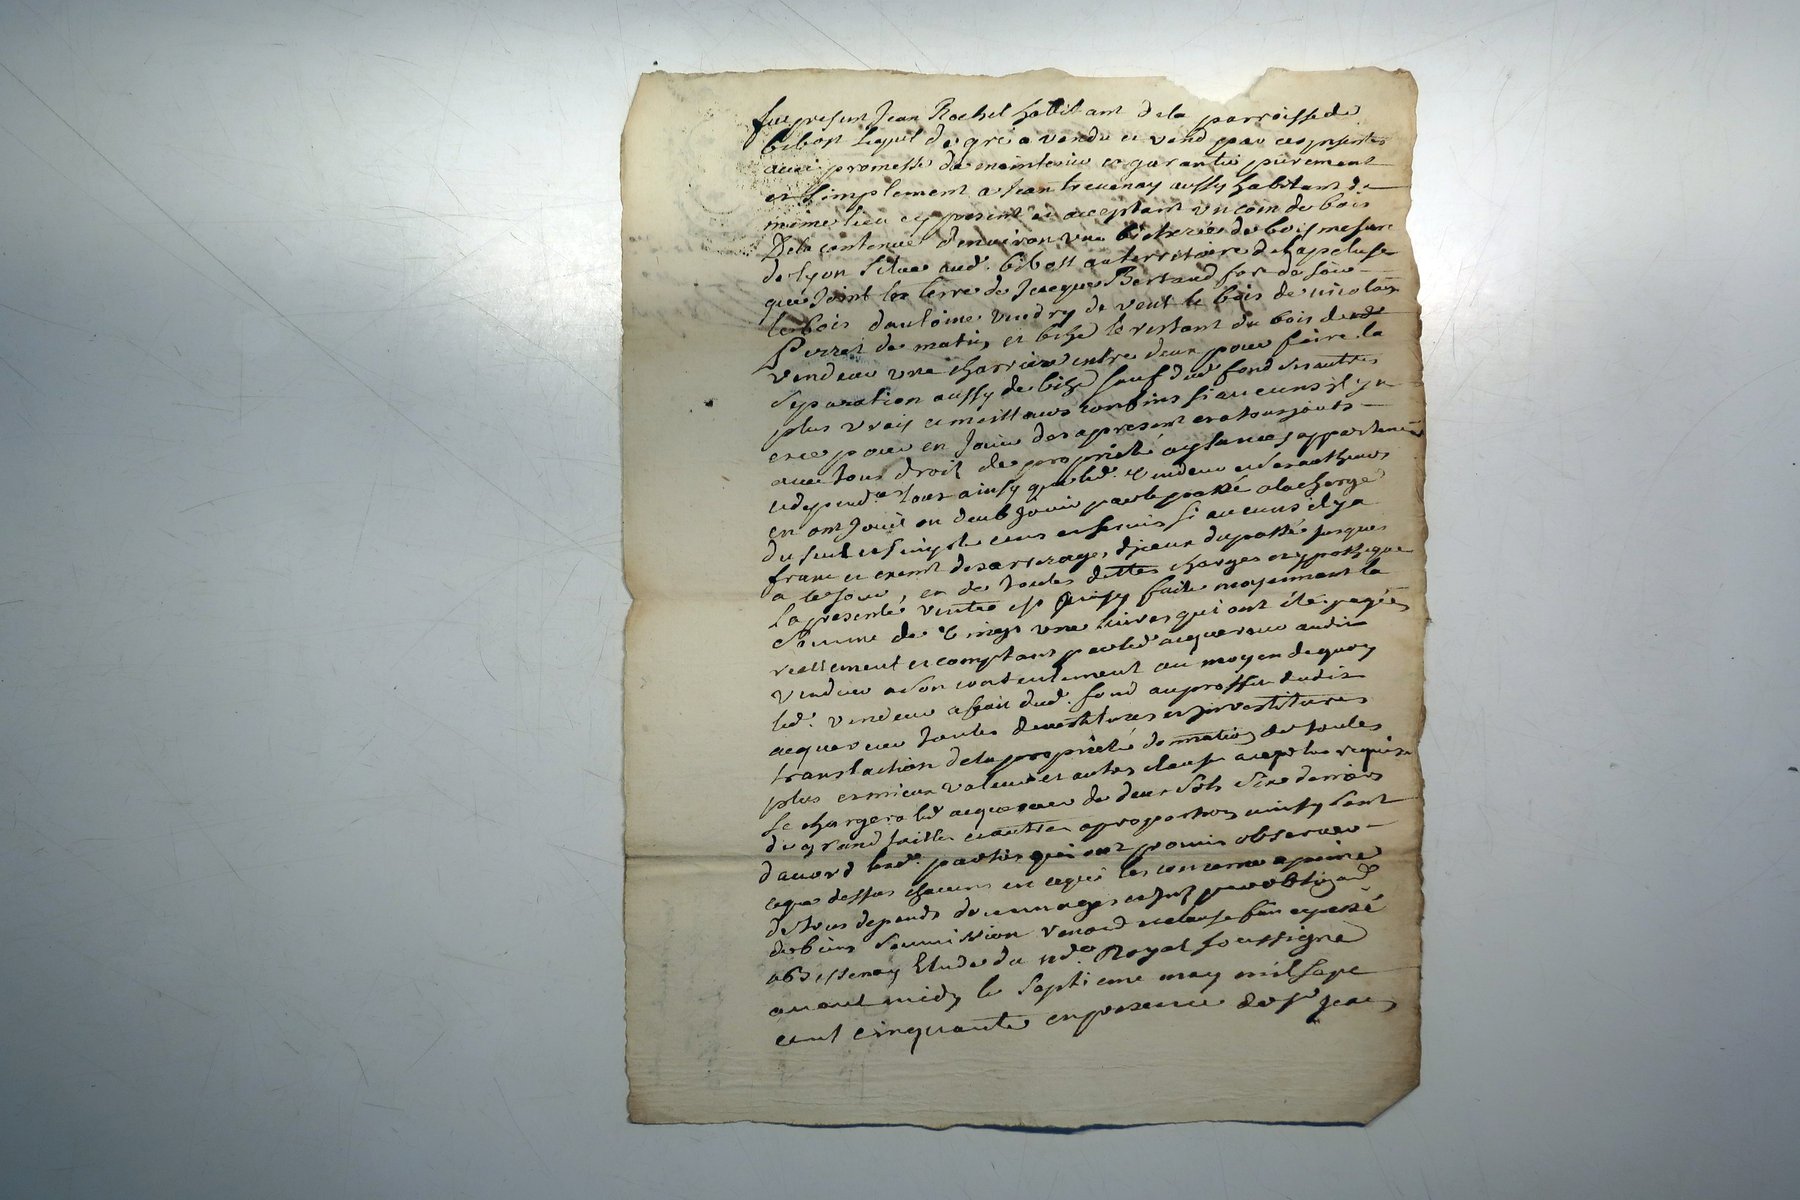 fut present Jean Rochel habitant de la parroisse de
bibost lequel de gré a vendu et vend par ces presentes
avec promesse de maintenir et garantir purement
et simplement a Jean trevenay aussy habitant du
même lieu cy present et acceptant un coin de bois
De la contenue d'environ une bicherée de bois mesure
de lyon situé aud. bibost au territoire de
que joint la terre de Jacques Bertrand de soir
le bois d'antoine vindry de vent le bois de nicolas
Perret de matin et bize le restant du bois dud
vendeur une charriere entre deux pour faire la
separation aussy de bize sauf dud fond ses autres
plus vrais et meilleurs confins si aucuns il y a
et ce pour en jouir des apresent et a toujours
avec tous droit de proprieté appartenances
et dependces tout ainsy que led. vendeur et ses autheurs
en ont jouit ou deub jouir par le passé a la charge
du seul et simple cens et servis si aucuns il y a
franc et exemt des arrerages d'jceux du passé jusques
a ce jour, et de toutes dettes charges et ypotheque
La presente vente est ainsy faite moyennant la
somme de vingt une livres qui ont été payées
reellement et comptant par led acquereur audit
vendeur a son contentement au moyen de quoy
led. vendeur a fait dud. fond au proffit dudit
acquereur toutes devestitures et jnvestitures
translation de la proprieté donnation de toutes
plus et mieux value et autres clauses a ce requises
se chargera led acquereur de deux sols six deniers
du grand taille et autre a proportion ainsy sont
d'accord lesd. parties qui ont promis observer
ce que dessus chacuns en ce qui les concerne a peine
de tous depends dommages et jnts par obligaon
de biens soumission renonc et clauses fait et passé
a Bessenay Etude du nore Royal soussigné
avant midy le septieme may mil sept
cent cinquante en presence de sr jean